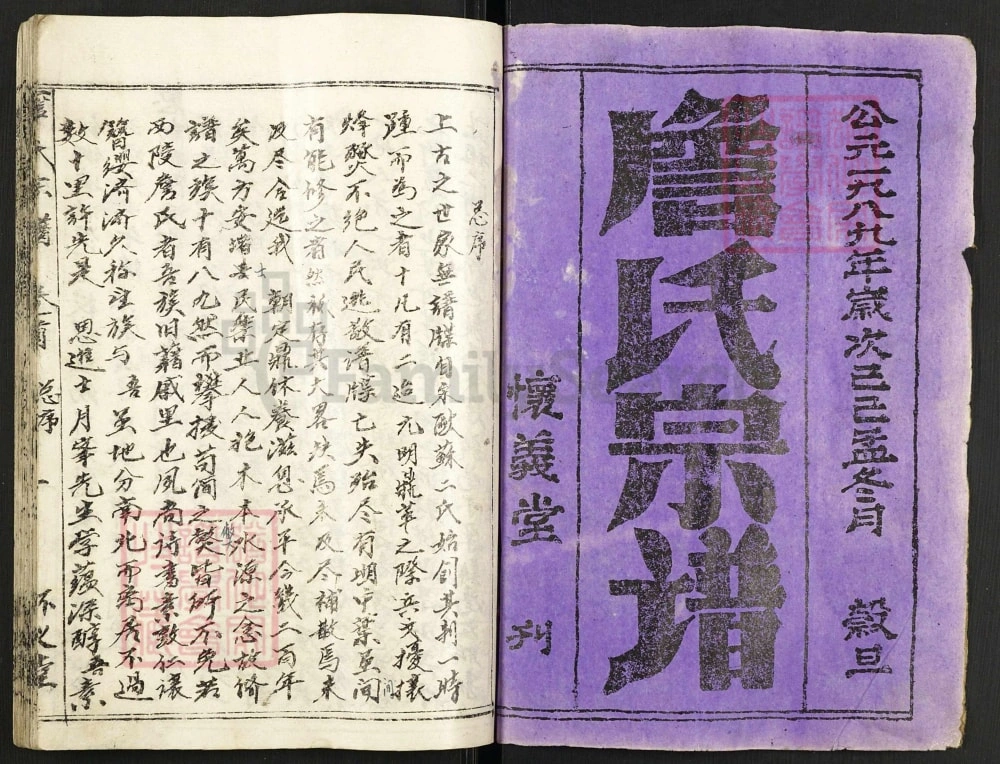 公元一九八九年歲次己巳孟冬月 穀旦
詹氏宗谱
懷義堂 刊
总序
上古之世家無譜牒自宋歐蘇二氏始創其荆一時
踵而為之者十凡有二迨元明鼎革之際兵戈擾攘
烽燹不絶人民逃散譜牒亡失殆尽有明中葉虽间
有能修之者然祈存其大畧次焉未及尽補散焉未
及尽合迨我 朝定鼎休養滋息承平今幾二百年
矣萬方安堵士民樂业人人抱木本水源之念故脩
譜之族十有八九然而攀援苟简之獘皆所不免若
西陵詹氏者吾族旧籍戚里也風尚诗書素敦仁讓
簪缨济济久称望族与 吾虽地分南北而离居不过
数十里許先是 思進士月峯先生学蕴深醇吾素
詹氏宗譜 卷首 总序 一